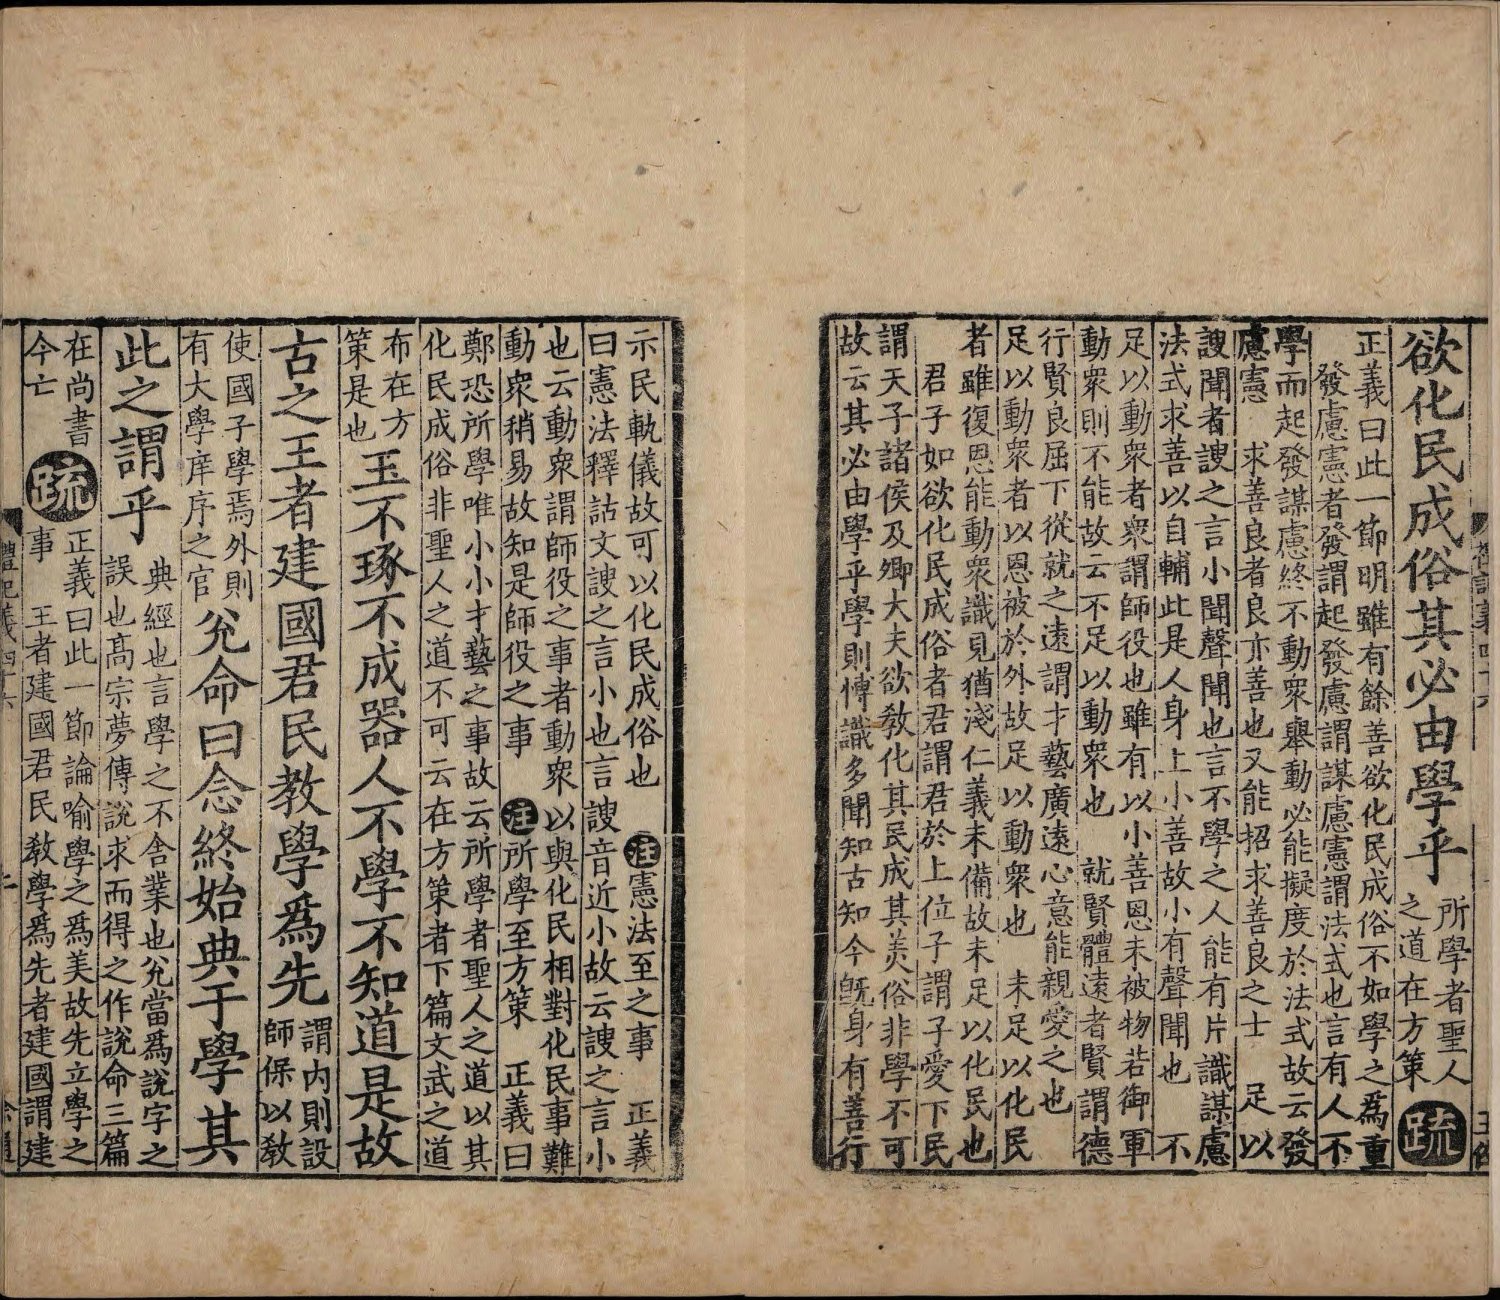 禮記義四十六
欲化民成俗其必由學乎 所學者聖人
之道在方策 疏
正義曰此一節明雖有餘善欲化民成俗不如學之爲重
發慮憲者發謂起發慮謂謀慮憲謂法式也言有人不
學而起發謀慮終不動衆舉動必能擬度於法式故云發
慮憲　求善良者良亦善也又能招求善良之士　足以
謏聞者謏之言小聞聲聞也言不學之人能有片識謀慮
法式求善以自輔此是人身上小善故小有聲聞也　不
足以動衆者衆謂師役也雖有以小善恩未被物若御軍
動衆則不能故云不足以動衆也　就賢體遠者賢謂德
行賢良屈下從就之遠謂才藝廣遠心意能親愛之也
足以動衆者以恩被於外故足以動衆也　未足以化民
者雖復恩能動衆識見猶淺仁義未備故未足以化民也
君子如欲化民成俗者君謂君於上位子謂子愛下民
謂天子諸侯及卿大夫欲教化其民成其美俗非學不可
故云其必由學乎學則愽識多聞知古知今旣身有善行
示民軌儀故可以化民成俗也　注憲法至之事　正義
曰憲法釋詁文謏之言小也言謏音近小故云謏之言小
也云動衆謂師役之事者動衆以與化民相對化民事難
動衆稍易故知是師役之事　注所學至方策　正義曰
鄭恐所學唯小小才藝之事故云所學者聖人之道以其
化民成俗非聖人之道不可云在方策者下篇文武之道
布在方
策是也 玉不琢不成器人不學不知道是故
古之王者建國君民教學爲先 謂内則設
師保以敎
使國子學焉外則
有大學庠序之官 兊命曰念終始典于學其
此之謂乎 典經也言學之不舍業也兊當爲說字之
誤也髙宗夢傅說求而得之作說命三篇
在尚書
今亡 疏 正義曰此一節論喻學之爲美故先立學之
事　王者建國君民敎學爲先者建國謂建
禮記義四十六